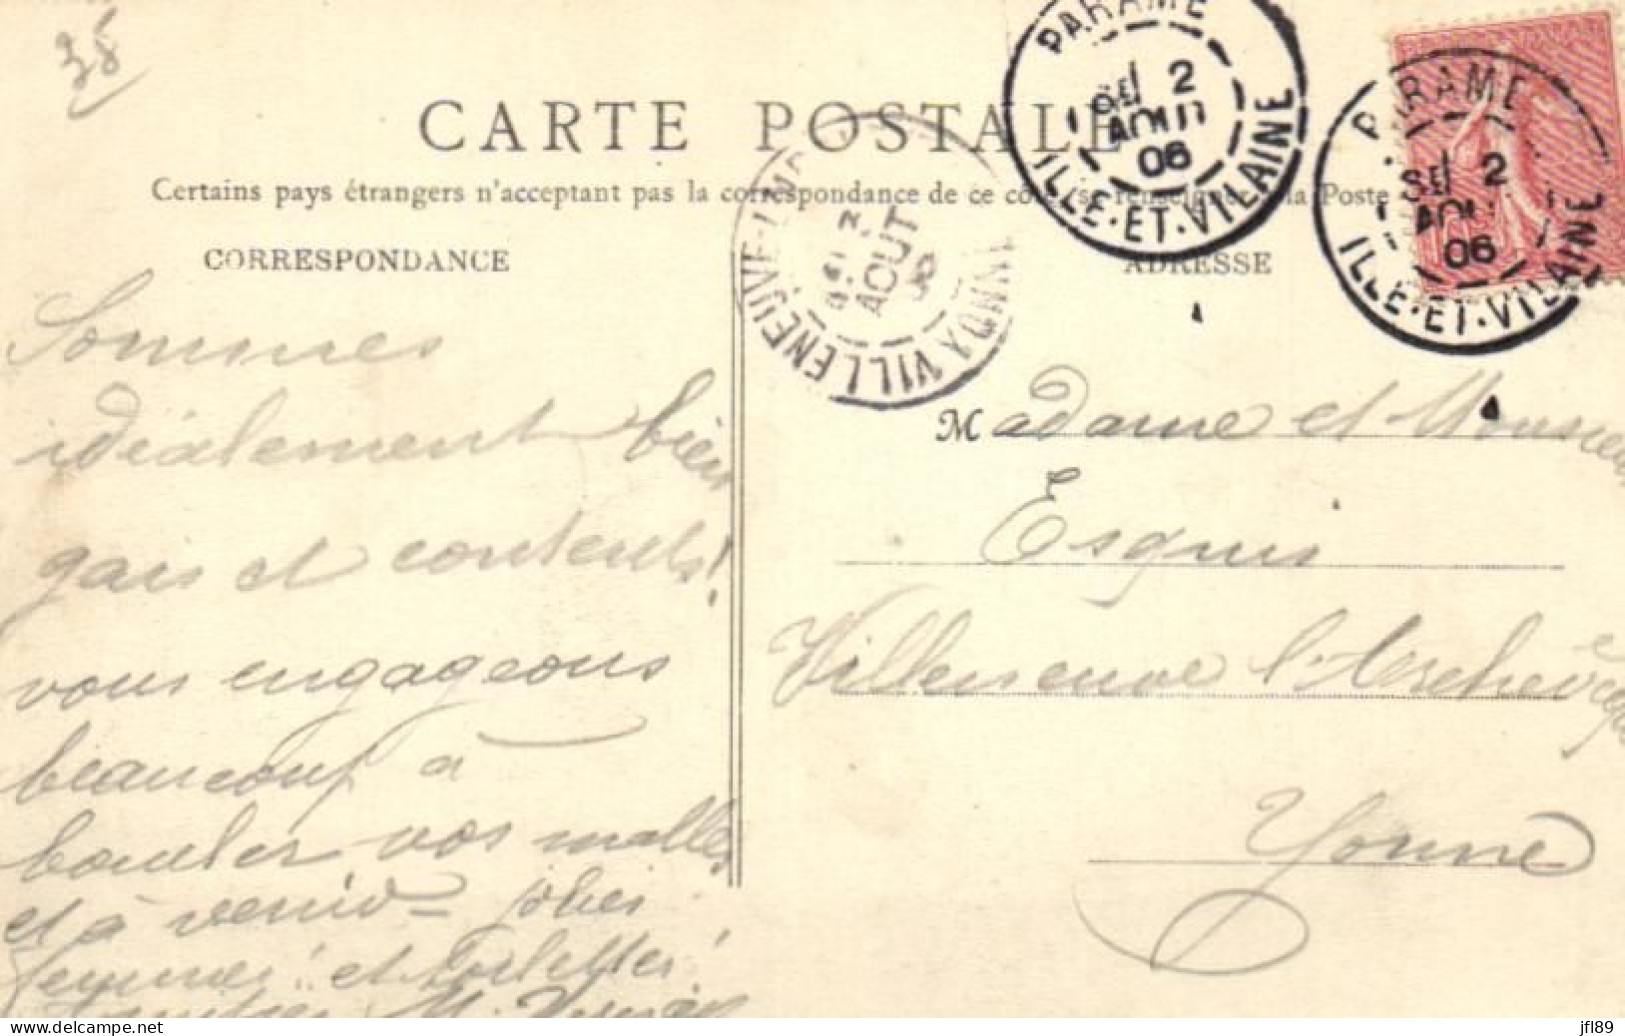 38
CARTE POSTALE
Certains pays étrangers n'acceptant pas la correspondance de ce la Poste
CORRESPONDANCE
ADRESSE
PARAMÉ
2
AOUT
06
ILLE-ET-VILAINE
PARAMÉ
2
AOU
06
ILLE-ET-VILAINE
VILLENEUVE-L'AR
AOUT
YONNE
Sommes
idéalement bien
gais et contents!
vous engageons
beaucoup à
boucler vos malles
et à venir - jolies
femmes! et toilettes!
M.
Madame et Monsieur
Esquis
Villeneuve l'Archevêque
Yonne
www.delcampe.net
jfl89